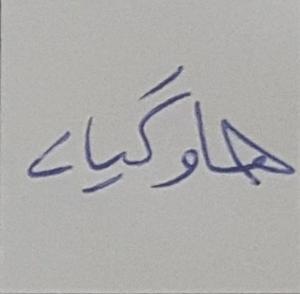 ھاوگیاے